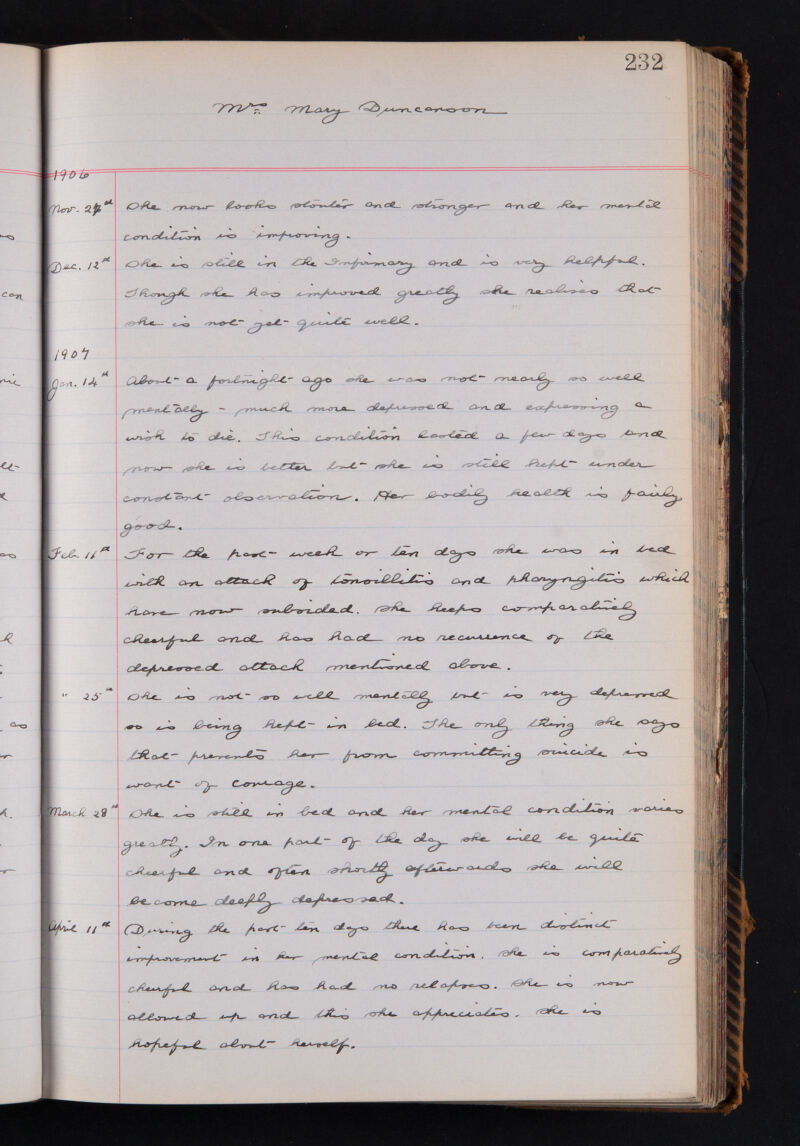 232
Mrs Mary Duncanson
1906
Nov. 27th She now looks stouter and stronger and her mental
condition is improving.
Dec. 12th She is still in the Infirmary and is very helpful.
Though she has improved greatly she realises that
she is not yet quite well.
1907
Jan. 14th About a fortnight ago she was not nearly so well
mentally - much more depressed and expressing a
wish to die. This condition lasted a few days and
now she is better but she is still kept under
constant observation. Her bodily health is fairly
good.
Feb. 11th For the past week or ten days she was in bed
with an attack of tonsillitis and pharyngitis which
have now subsided. She keeps comparatively
cheerful and has had no recurrence of the
depressed attack mentioned above.
" 25th She is not so well mentally but is very depressed
so is being kept in bed. The only thing she says
that prevents her from committing suicide is
want of courage.
March 28th She is still in bed and her mental condition varies
greatly. In one part of the day she will be quite
cheerful and often shortly afterwards she will
become deeply depressed.
April 11th During the past ten days there has been distinct
improvement in her mental condition. She is comparatively
cheerful and has had no relapses. She is now
allowed up and this she appreciates. She is
hopeful about herself.